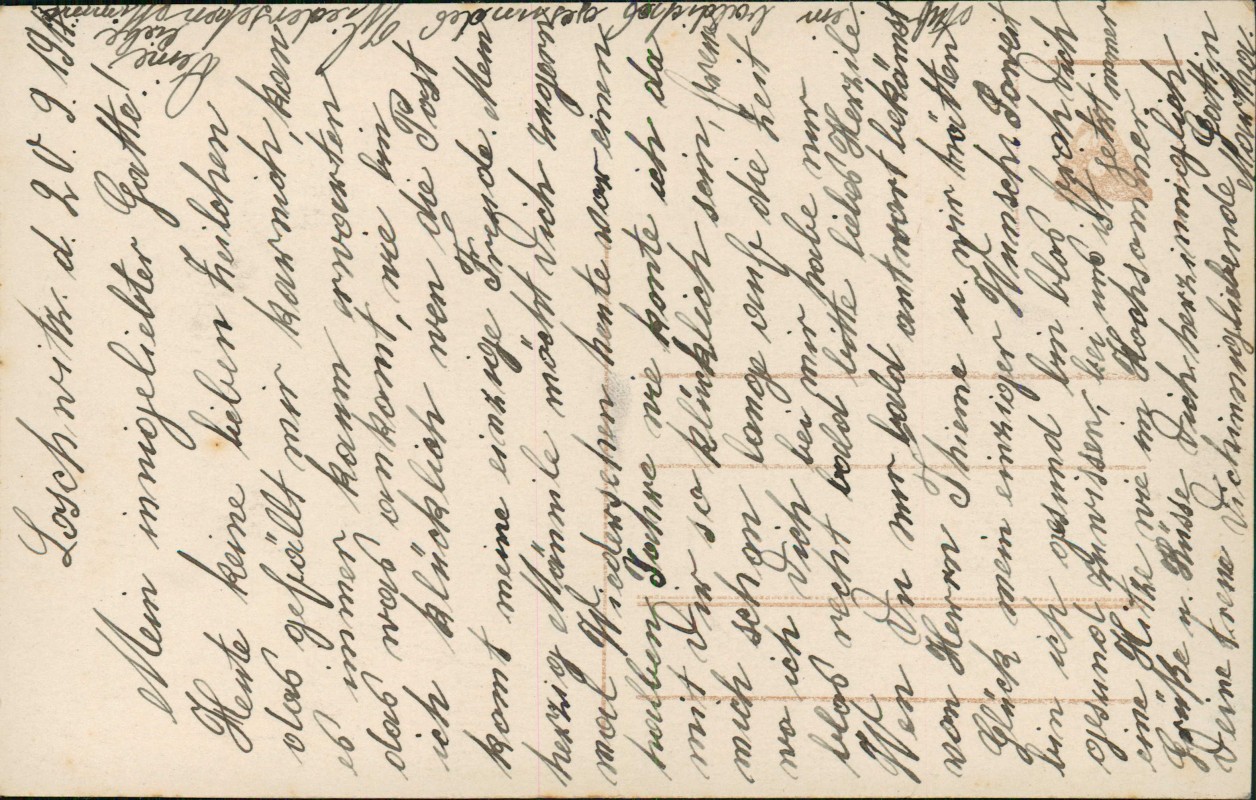 Loschwitz. d. 20. 9. 19
Mein innigeliebter Gatte!
Heute keine lieben Zeilchen
das gefällt mir karnich, kan
es immer kaum erwarten
das was ankomt, wie bin
ich klücklich wen die Post
komt meine einzige Freude. Mein
herzig Mänile möcht Dich ungern
mal Wiedersehen heute vor einen
halben Jahre wie konte ich da
mit Dir so klücklich sein, freue
mich schon lange auf die Zeit
wo ich Dich bei mir habe nur
blos recht bald bitte liebes Herzile
Wen Du nur bald antwort bekämst
von Herrn Thieme u. wir hätten
Glück mein einziger Wunsch. Soweit
bin ich gesund bin blos froh Dich
gesund zu wissen, bei uns ist jetzt immer
eine Hitze wie im Hochsommer.
Grüße u. Küsse Dich herzinniglich
Deine treue Dichinnigliebende Gattin
Marthe.
Auf ein baldiches gesundes Wiedersehen
Deine liebe